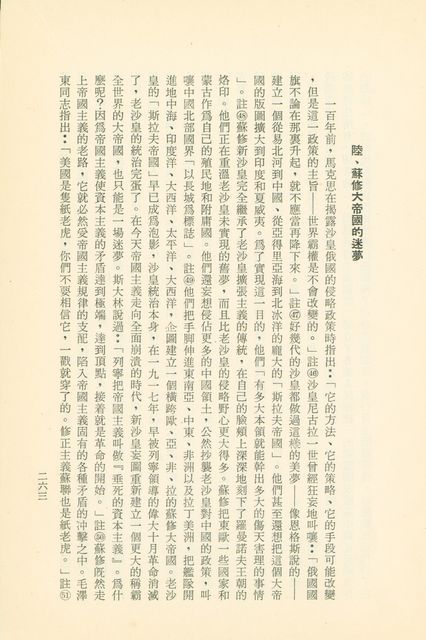 陸、蘇修大帝國的迷夢
一百年前，馬克思在揭露沙皇俄國的侵略政策時指出：「它的方法、它的策略、它的手段可能改變
，但是這一政策的主旨——世界霸權是不會改變的。」註㊻沙皇尼古拉一世曾經狂妄地叫嚷：「俄國國
旗不論在那裏升起，就不應當再降下來。」註㊼好幾代的沙皇都做過這樣的美夢——像恩格斯說的——
建立一個從易北河到中國、從亞得里亞海到北冰洋的龐大的「斯拉夫帝國」。他們甚至還想把這個大帝
國的版圖擴大到印度和夏威夷。爲了實現這一目的，他們「有多大本領就能幹出多大的傷天害理的事情
」。註㊽蘇修新沙皇完全繼承了老沙皇擴張主義的傳統，在自己的臉頰上深深地刻下了羅曼諾夫王朝的
烙印。他們正在重溫老沙皇未實現的舊夢，而且比老沙皇的侵略野心更大得多。蘇修把東歐一些國家和
蒙古作爲自己的殖民地和附庸國。他們還妄想侵佔更多的中國領土，公然抄襲老沙皇對中國的政策，叫
嚷中國北部國界「以長城爲標誌」。註㊾他們把手脚伸進東南亞、中東、非洲以及拉丁美洲，把艦隊開
進地中海、印度洋、大西洋、太平洋、大西洋，企圖建立一個橫跨歐、亞、非、拉的蘇修大帝國。老沙
皇的「斯拉夫帝國」早已成爲泡影，沙皇統治本身，在一九一七年，早被列寧領導的偉大十月革命消滅
了，老沙皇的統治完蛋了。在今天帝國主義走向全面崩潰的時代，新沙皇妄圖重新建立一個更大的稱霸
全世界的大帝國，也只能是一場迷夢。斯大林說過：「列寧把帝國主義叫做『垂死的資本主義』。爲什
麼呢？因爲帝國主義使資本主義的矛盾達到極端，達到頂點，接着就是革命的開始。」註㊿蘇修旣然走
上帝國主義的老路，它就必然受帝國主義規律的支配，陷入帝國主義固有的各種矛盾的冲擊之中。毛澤
東同志指出：「美國是隻紙老虎，你們不要相信它，一戳就穿了的。修正主義蘇聯也是紙老虎。」註(51)
二六三